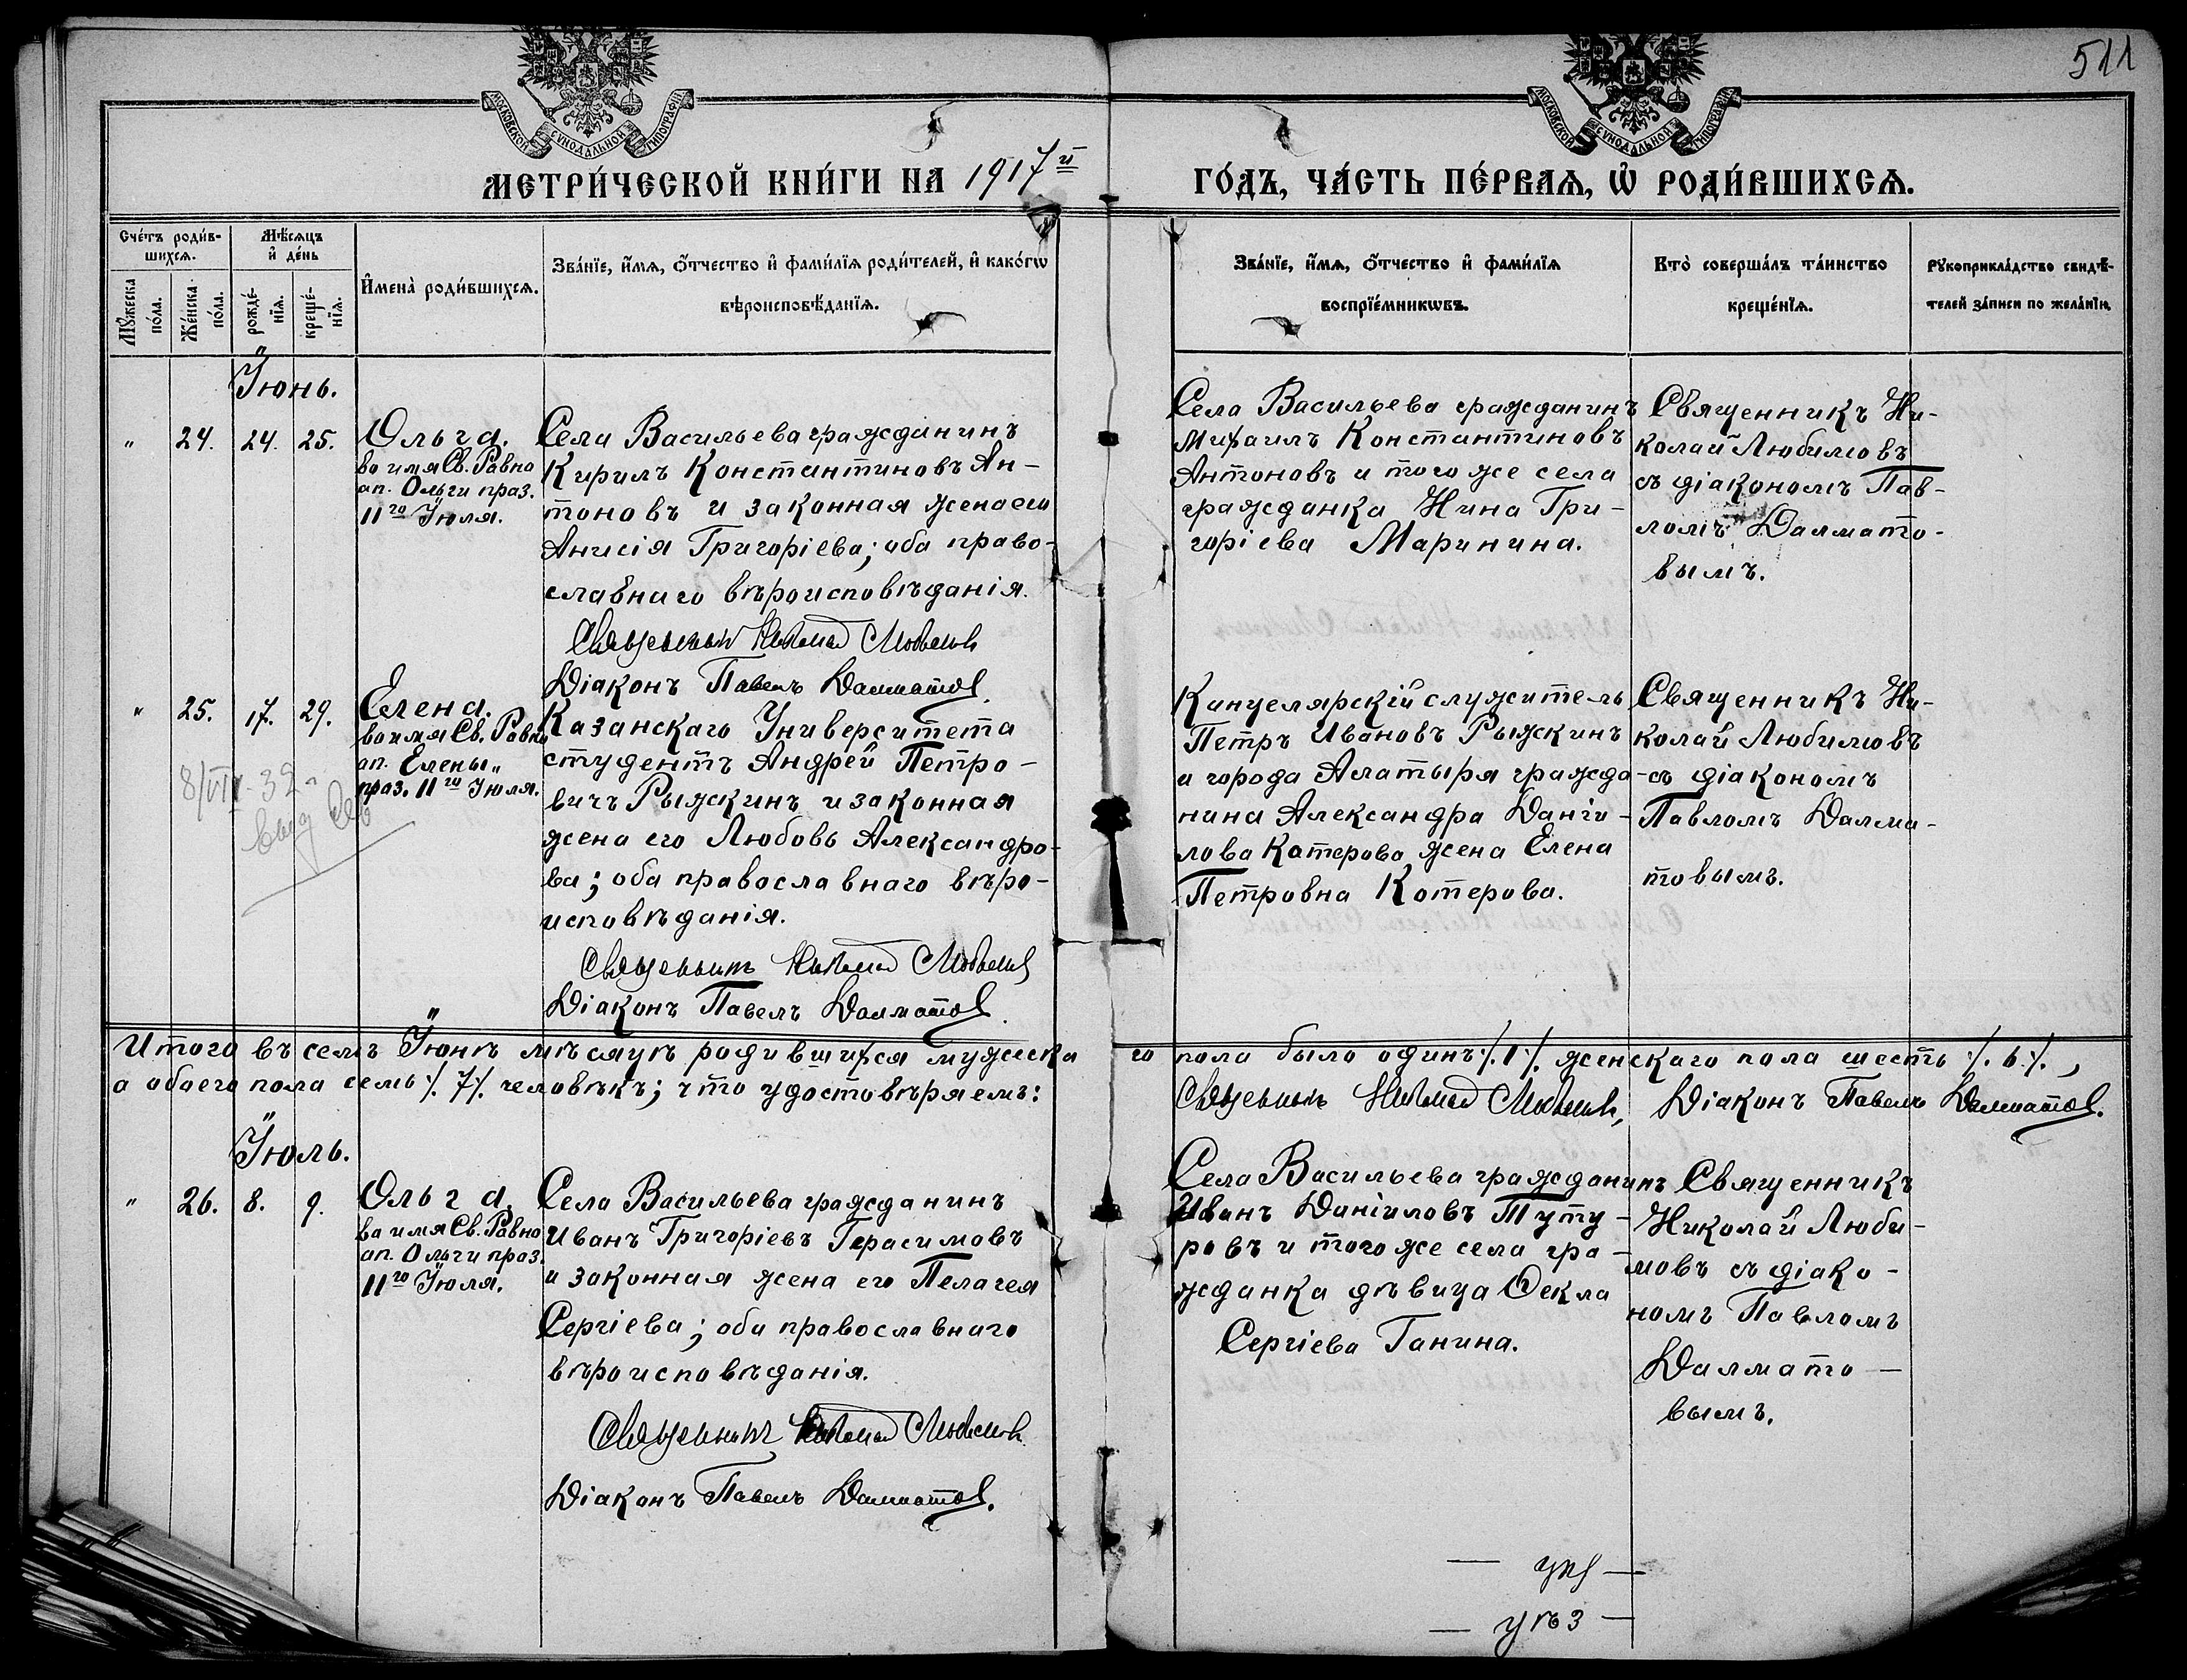 511
МОСКОВСКОЙ СѴНОДАЛЬНОЙ ТИПОГРАФІИ
МОСКОВСКОЙ СѴНОДАЛЬНОЙ ТИПОГРАФІИ
МЕТРИ́ЧЕСКОЙ КНИ́ГИ НА 1917й
ГО́ДЪ, ЧА́СТЬ ПЕ́РВАѦ, Ѡ҆ РОДИ́ВШИХСѦ.
Сче́тъ роди́в-
шихсѧ.
Мꙋ́жеска по́ла.
Же́нска по́ла.
Мѣ́сѧцъ
и҆ де́нь
рожде́-
нїѧ.
креще́-
нїѧ.
И҆мена̀ роди́вшихсѧ.
Зва́нїе, и҆́мѧ, ѻ҆́тчество и҆ фами́лїѧ роди́телей, и҆ како́гѡ
вѣроисповѣ́данїѧ.
Зва́нїе, и҆́мѧ, ѻ҆́тчество и҆ фами́лїѧ
воспрїе́мникѡвъ.
Кто̀ соверша́лъ та́инство
креще́нїѧ.
Рꙋкоприкла́дство свидѣ́-
телей за́писи по жела́нїю.
Іюнь.
„ 24. 24. 25.
Ольга.
во имя Св. Равно
ап. Ольги праз.
11го Іюля.
Села Васильева гражданинъ
Кирилъ Константиновъ Ан-
тоновъ и законная жена его
Анисія Григоріева; оба право-
славнаго вѣроисповѣданія.
Священникъ Николай Любимовъ
Діаконъ Павелъ Далматовъ.
Села Васильева гражданинъ
Михаилъ Константиновъ
Антоновъ и того же села
гражданка Нина Гри-
горіева Маринина.
Священникъ Ни-
колай Любимовъ
съ діакономъ Пав-
ломъ Далмато-
вымъ.
„ 25. 17. 29.
Елена.
во имя Св. Равно
ап. Елены„
праз. 11го Іюля.
Казанскаго Университета
студентъ Андрей Петро-
вичъ Рыжкинъ и законная
жена его Любовь Александро-
ва; оба православнаго вѣро-
исповѣданія.
Священникъ Николай Любимовъ
Діаконъ Павелъ Далматовъ.
Канцелярскій служитель
Петръ Ивановъ Рыжкинъ
и города Алатыря гражда-
нина Александра Даніи-
лова Котерова жена Елена
Петровна Котерова.
Священникъ Ни-
колай Любимовъ
съ діакономъ
Павломъ Далма-
товымъ.
Итого въ семъ Іюнѣ мѣсяцѣ родившихся мужеска
го пола было одинъ ·/.1·/. женскаго пола шесть ·/.6.·/.,
а обоего пола семь ·/.7·/. человѣкъ; что удостовѣряемъ:
Священникъ Николай Любимовъ, Діаконъ Павелъ Далматовъ.
Іюль.
„ 26. 8. 9.
Ольга.
во имя Св. Равно
ап. Ольги праз.
11го Іюля.
Села Васильева гражданинъ
Иванъ Григоріевъ Герасимовъ
и законная жена его Пелагея
Сергіева; оба православнаго
вѣроисповѣданія.
Священникъ Николай Любимовъ
Діаконъ Павелъ Далматовъ.
Села Васильева гражданинъ
Иванъ Даніиловъ Туту-
ровъ и того же села гра-
жданка дѣвица Ѳекла
Сергіева Ганина.
Священникъ
Николай Люби-
мовъ съ діако-
номъ Павломъ
Далмато-
вымъ.